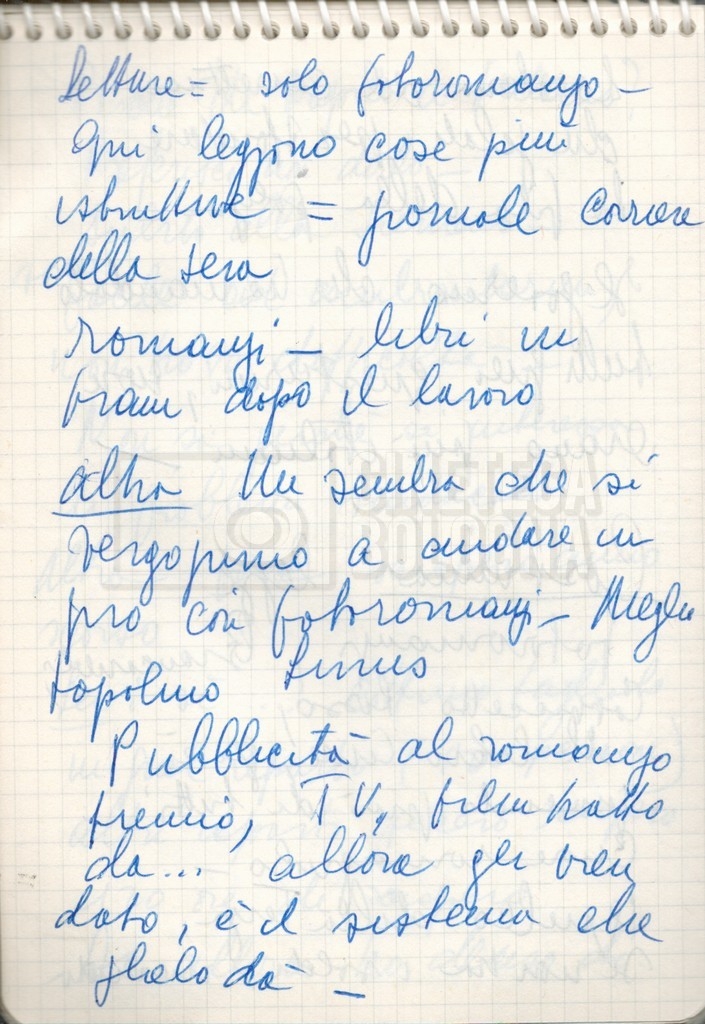 Letture = solo fotoromanzo -
Qui leggono cose più
istruttive = giornale Corriere
della sera
romanzi - libri in
tram dopo il lavoro
altra Mi sembra che si
vergognino a andare in
giro coi fotoromanzi - Meglio
topolino Linus
Pubblicità al romanzo
premio, TV, film tratto
da... allora gli vien
dato, è il sistema che
glielo dà -
CINETECA
BOLOGNA